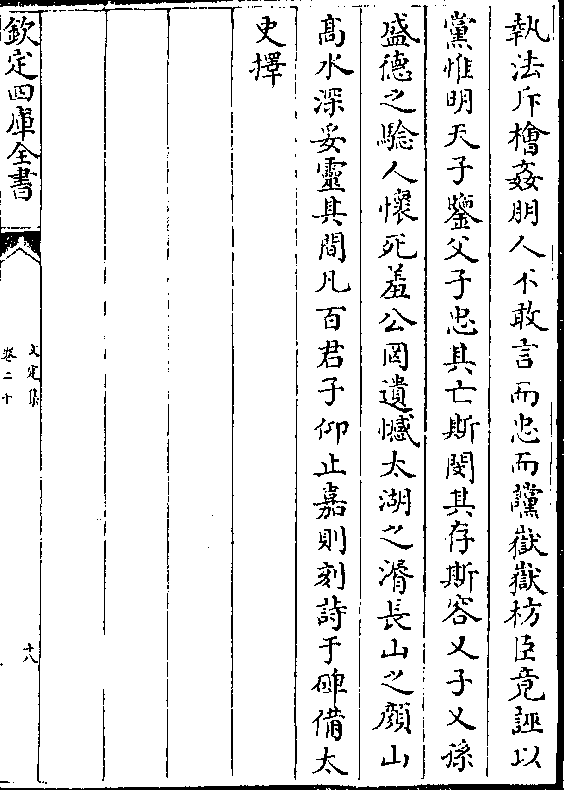 執法斥檜姦朋人不敢言而忠而讜嶽嶽枋臣竟誣以
黨惟明天子鑒父子忠其亡斯閔其存斯容乂子乂孫
盛德之騐人懐死羞公罔遺憾太湖之漘長山之顔山
髙水深妥靈其間凡百君子仰止嘉則刻詩于碑備太
史擇
欽定四庫全書
文定集
卷二十
十八